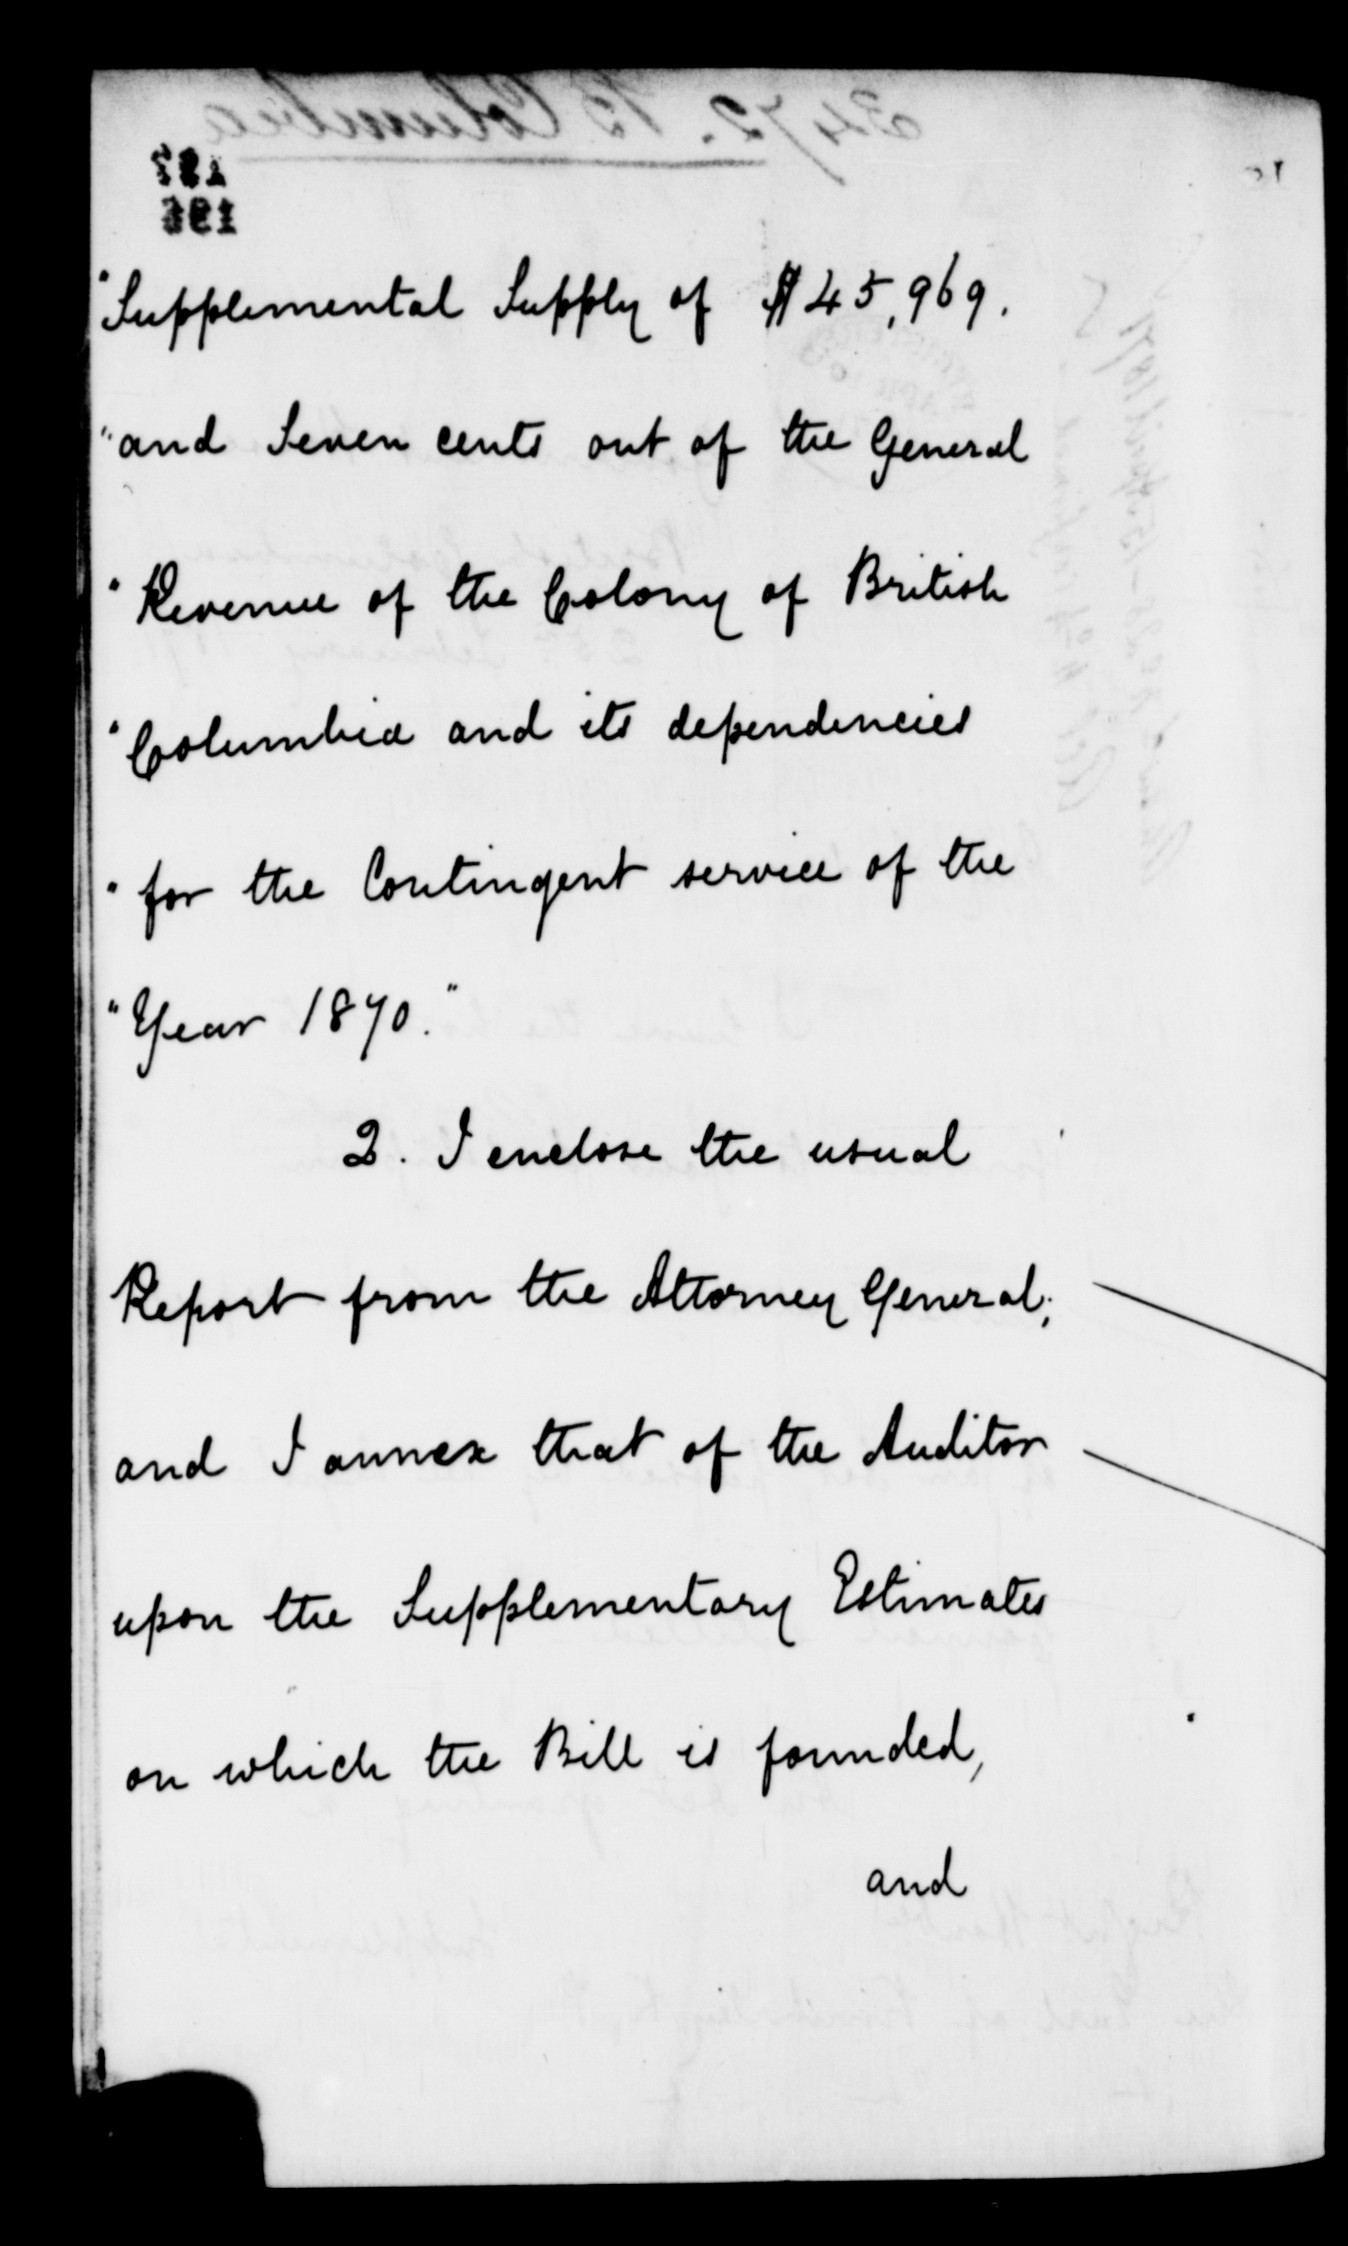 "Supplemental Supply of $45,969.
"and Seven cents out of the General
"Revenue of the Colony of British
"Columbia and its dependencies
"for the Contingent service of the
"Year 1870."
2. I enclose the usual
Report from the Attorney General;
and I annex that of the Auditor
upon the Supplementary Estimates
on which the Bill is founded,
and